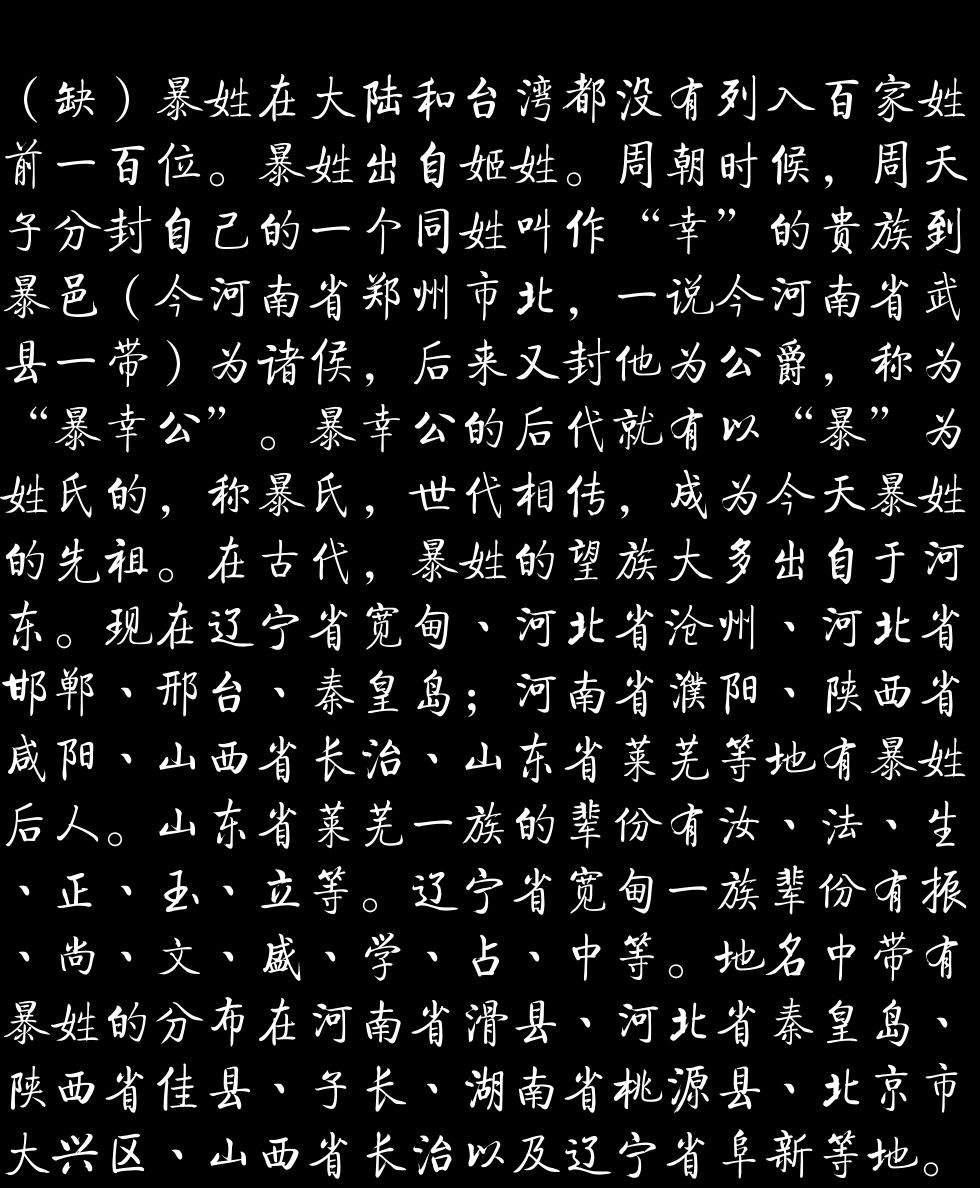 （缺）暴姓在大陆和台湾都没有列入百家姓
前一百位。暴姓出自姬姓。周朝时候，周天
子分封自己的一个同姓叫作“幸”的贵族到
暴邑（今河南省郑州市北，一说今河南省武
县一带）为诸侯，后来又封他为公爵，称为
“暴幸公”。暴幸公的后代就有以“暴”为
姓氏的，称暴氏，世代相传，成为今天暴姓
的先祖。在古代，暴姓的望族大多出自于河
东。现在辽宁省宽甸、河北省沧州、河北省
邯郸、邢台、秦皇岛；河南省濮阳、陕西省
咸阳、山西省长治、山东省莱芜等地有暴姓
后人。山东省莱芜一族的辈份有汝、法、生
、正、玉、立等。辽宁省宽甸一族辈份有振
、尚、文、盛、学、占、中等。地名中带有
暴姓的分布在河南省滑县、河北省秦皇岛、
陕西省佳县、子长、湖南省桃源县、北京市
大兴区、山西省长治以及辽宁省阜新等地。